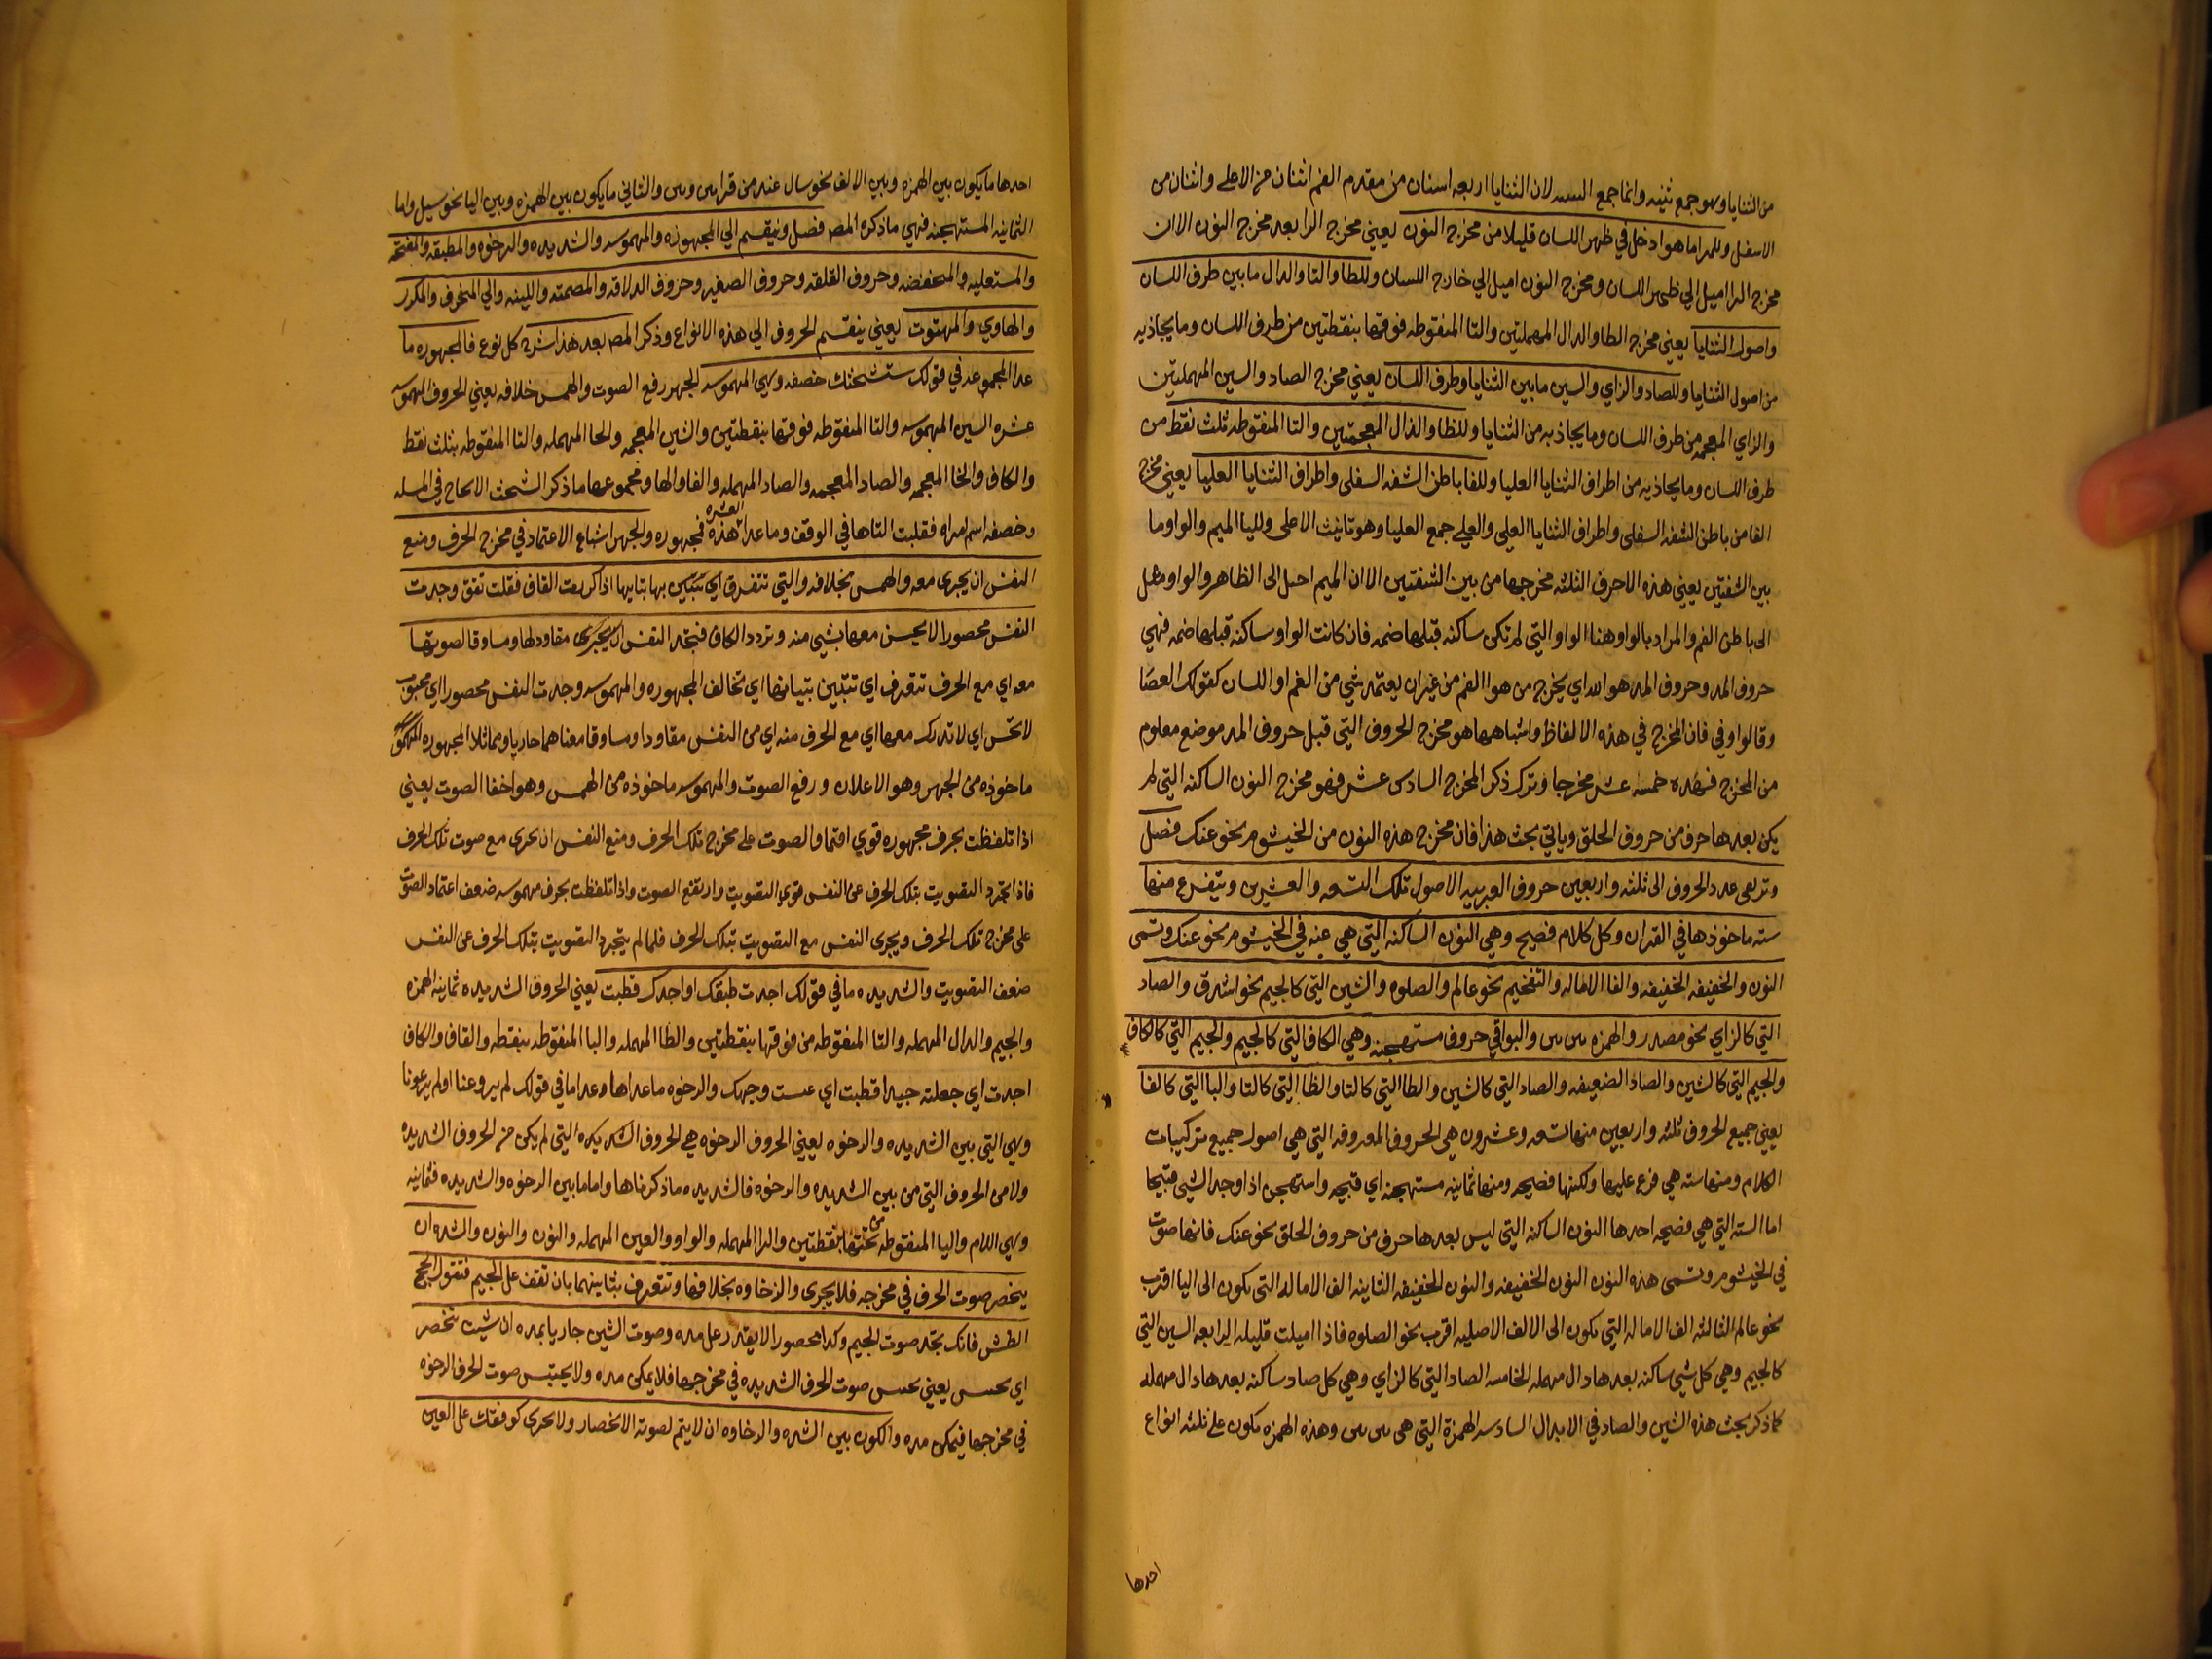 من الثنايا وهو جمع ثنيه وانما جمع لان الثنايا اربعه اسنان من مقدم الفم اثنان من الاعلى واثنان من
الاسفل وللرا ما هو ادخل في ظهر اللسان قليلا من مخرج النون يعني مخرج الرا بعد مخرج النون الا ان
مخرج الرا اميل الى ظهر اللسان ومخرج النون اميل الي خارج اللسان وللطا والتا والدال ما بين طرف اللسان
واصول الثنايا يعني مخرج الطا والدال المهملتين والتا المنقوطه فوقها بنقطتين من طرف اللسان وما يحاذيه
من اصول الثنايا وللصاد والزاي والسين ما بين الثنايا وطرف اللسان يعني مخرج الصاد والسين المهملتين
والزاي المعجمه من طرف اللسان وما يحاذيه من الثنايا وللظا والذال المعجمتين والثا المنقوطه ثلث نقط من
طرف اللسان وما يحاذيه من اطراف الثنايا العليا وللفا باطن الشفه السفلى واطراف الثنايا العليا يعني مخرج
الفا من باطن الشفه السفلى واطراف الثنايا العلي والعلي جمع العليا وهو تانيث الاعلى ولليا الميم والواو ما
بين الشفتين يعني هذه الاحرف الثلثه مخرجها من بين الشفتين الا ان الميم الى الظاهر والواو
الى باطن الفم والمراد بالواو هنا الواو التي لم تكن ساكنه قبلها ضمه فان كانت الواو ساكنه قبلها ضمه فهي
حروف المد وحروف المد هو الذي يخرج من هوا الفم من غير ان يعتمد شي من الفم او اللسان كقولك العصا
وقالوا وفي فان المخرج في هذه الالفاظ واشباهها هو مخرج الحروف التي قبل حروف المد موضع معلوم
من المخرج فهذه خمسه عشر مخرجا وترك ذكر المخرج السادس عشر فهو مخرج النون الساكنه التي لم
يكن بعدها حرف من حروف الحلق وياتي بحث هذا فان مخرج هذه النون من الخيشوم نحو عنك فصل
وترتقى عدد الحروف الى ثلثه واربعين حروف العربيه الاصول تلك التسعه والعشرين ويتفرع منها
سته ماخوذ بها في القران وكل كلام فصيح وهي النون الساكنه التي هي غنه في الخيشوم نحو عنك وتسمى
النون والخفيفه الخفيفه والفا الاماله والتفخيم نحو عالم والصلوه والشين التي كالجيم نحو اشدق والصاد
التي كالزاي نحو مصدر والهمزه بين بين والبواقي حروف مستهجنه وهي الكاف التي كالجيم والجيم التي كالكاف
والجيم التي كالشين والضاد الضعيفه والصاد التي كالسين والطا التي كالتا والظا التي كالثا والبا التي كالفا
يعني جميع الحروف ثلثه واربعين منها تسعه وعشرون هي الحروف المعروفه التي هي اصول جميع تركيبات
الكلام ومنها سته هي فرع عليها ولكنها فصيحه ومنها ثمانيه مستهجنه اي قبيحه واستهجن اذا وجد الشي قبيحا
اما السته التي هي فصيحه احدها النون الساكنه التي ليس بعدها حرف من حروف الحلق نحو عنك فانها صوت
في الخيشوم وتسمى هذه النون النون الخفيفه والنون الخفيفه الثانيه الف الاماله التي تكون الى اليا اقرب
نحو عالم الثالثه الف الاماله التي تكون الى الالف الاصليه اقرب نحو الصلوه فاذا اميلت قليله الرابعه السين التي
كالجيم وهي كل شي ساكنه بعدها دال مهمله الخامسه الصاد التي كالزاي وهي كل صاد ساكنه بعدها دال مهمله
كما ذكر بحث هذه الشين والصاد في الابدال السادسه الهمزة التي هي بين بين وهذه الهمزه تكون على ثلثه انواع
احدها
احدها ما يكون بين الهمزه وبين الالف نحو سال عند من قرا بين بين والثاني ما يكون بين الهمزه وبين اليا نحو سيل واما
الثمانيه المستهجنه فهي ما ذكره المص فصل وينقسم الي المجهوره والمهموسه والشديده والرخوه والمطبقه والمنفتحه
والمستعليه والمنخفضه وحروف القلقه وحروف الصفير وحروف الدلاقه والمصمته واللينه والي المنحرف والمكرر
والهاوي والمهتوت يعني ينقسم الحروف الي هذه الانواع وذكر المص بعد هذا شرح كل نوع فالمجهوره ما
عدا المجموعه في قولك ستشحثك خصفه وهي المهموسه الجهر رفع الصوت والهمس خلافه يعني الحروف المهموسه
عشره السين المهموسه والتا المنقوطه فوقها بنقطتين والشين المعجمه والحا المهمله والثا المنقوطه بثلث نقط
والكاف والخا المعجمه والصاد المعجمه والصاد المهمله والفا والها ومجموعها ما ذكر الشحث الالحاح في المسله
وخصفه اسم امراه فقلبت التا ها في الوقف وما عدا هذه العشره فمجهوره والجهر اشباع الاعتماد في مخرج الحرف ومنع
النفس ان يجرى معه والهمس بخلافه والتي تتفرق اي تتبين بها بتاينها اذا كررت القاف فقلت ققق وجدت
النفس محصورا لا يحس معها بشي منه وتردد الكاف فتجد النفس ان يجرى مقاودا لها ومساوقا لصوتها
معه اي مع الحرف تتفرق اي تتبين بتباينها اي تخالف المجهوره والمهموسه وجدت النفس محصورا اي محبوس
لا تحس اي لا تدرك معها اي مع الحرف منه اي من النفس مقاودا ومساوقا معناهما جاريا ومماثلا المجهوره
ماخوذه من الجهر وهو الاعلان ورفع الصوت والمهموسه ماخوذه من الهمس وهو اخفا الصوت يعني
اذا تلفظت بحرف مجهوره قوي اعتماد الصوت على مخرج تلك الحرف ومنع النفس ان يجرى مع صوت تلك الحرف
فاذا تجرد التصويت بتلك الحرف عن النفس قوي التصويت وارتفع الصوت واذا تلفظت بحرف مهموسه ضعف اعتماد الصوت
على مخرج تلك الحرف ويجرى النفس مع التصويت بتلك الحرف فلما لم يتجرد التصويت بتلك الحرف عن النفس
ضعف التصويت والشديده ما في قولك اجدت طبقك او اجدك قطبت يعني الحروف الشديده ثمانيه الهمزه
والجيم والدال المهمله والتا المنقوطه من فوقها بنقطتين والطا المهمله والبا المنقوطه بنقطه والقاف والكاف
اجدت اي جعلته جيدا قطبت اي عبست وجهك والرخوه ما عداها وعدا ما في قولك لم يروعنا او لم يرعونا
وهي التي بين الشديده والرخوه يعني الحروف الرخوه هي الحروف الشديده التي لم يكن من الحروف الشديده
ولا من الحروف التي من بين الشديده والرخوه فالشديده ما ذكرناها واما ما بين الرخوه والشديده فثمانيه
وهي اللام واليا المنقوطه من تحتها بنقطتين والرا المهمله والواو والعين المهمله والنون والنون والشده ان
ينحصر صوت الحرف في مخرجه فلا يجرى والرخاوه بخلافها وتتعرف بتباينهما بان تقف على الجيم فتقول الحج
الطش فانك تجد صوت الجيم وكدا محصورا لا يقدر على مده وصوت الشين جاريا بمده ان شيت تنحصر
اي يحبس يعني يحبس صوت الحرف الشديده في مخرجها فلا يمكن مده ولا يحتبس صوت الحرف الرخوه
في مخرجها فيمكن مده والكون بين الشده والرخاوه ان لا يتم لصوته الانحصار ولا يجرى كوقفك على العين